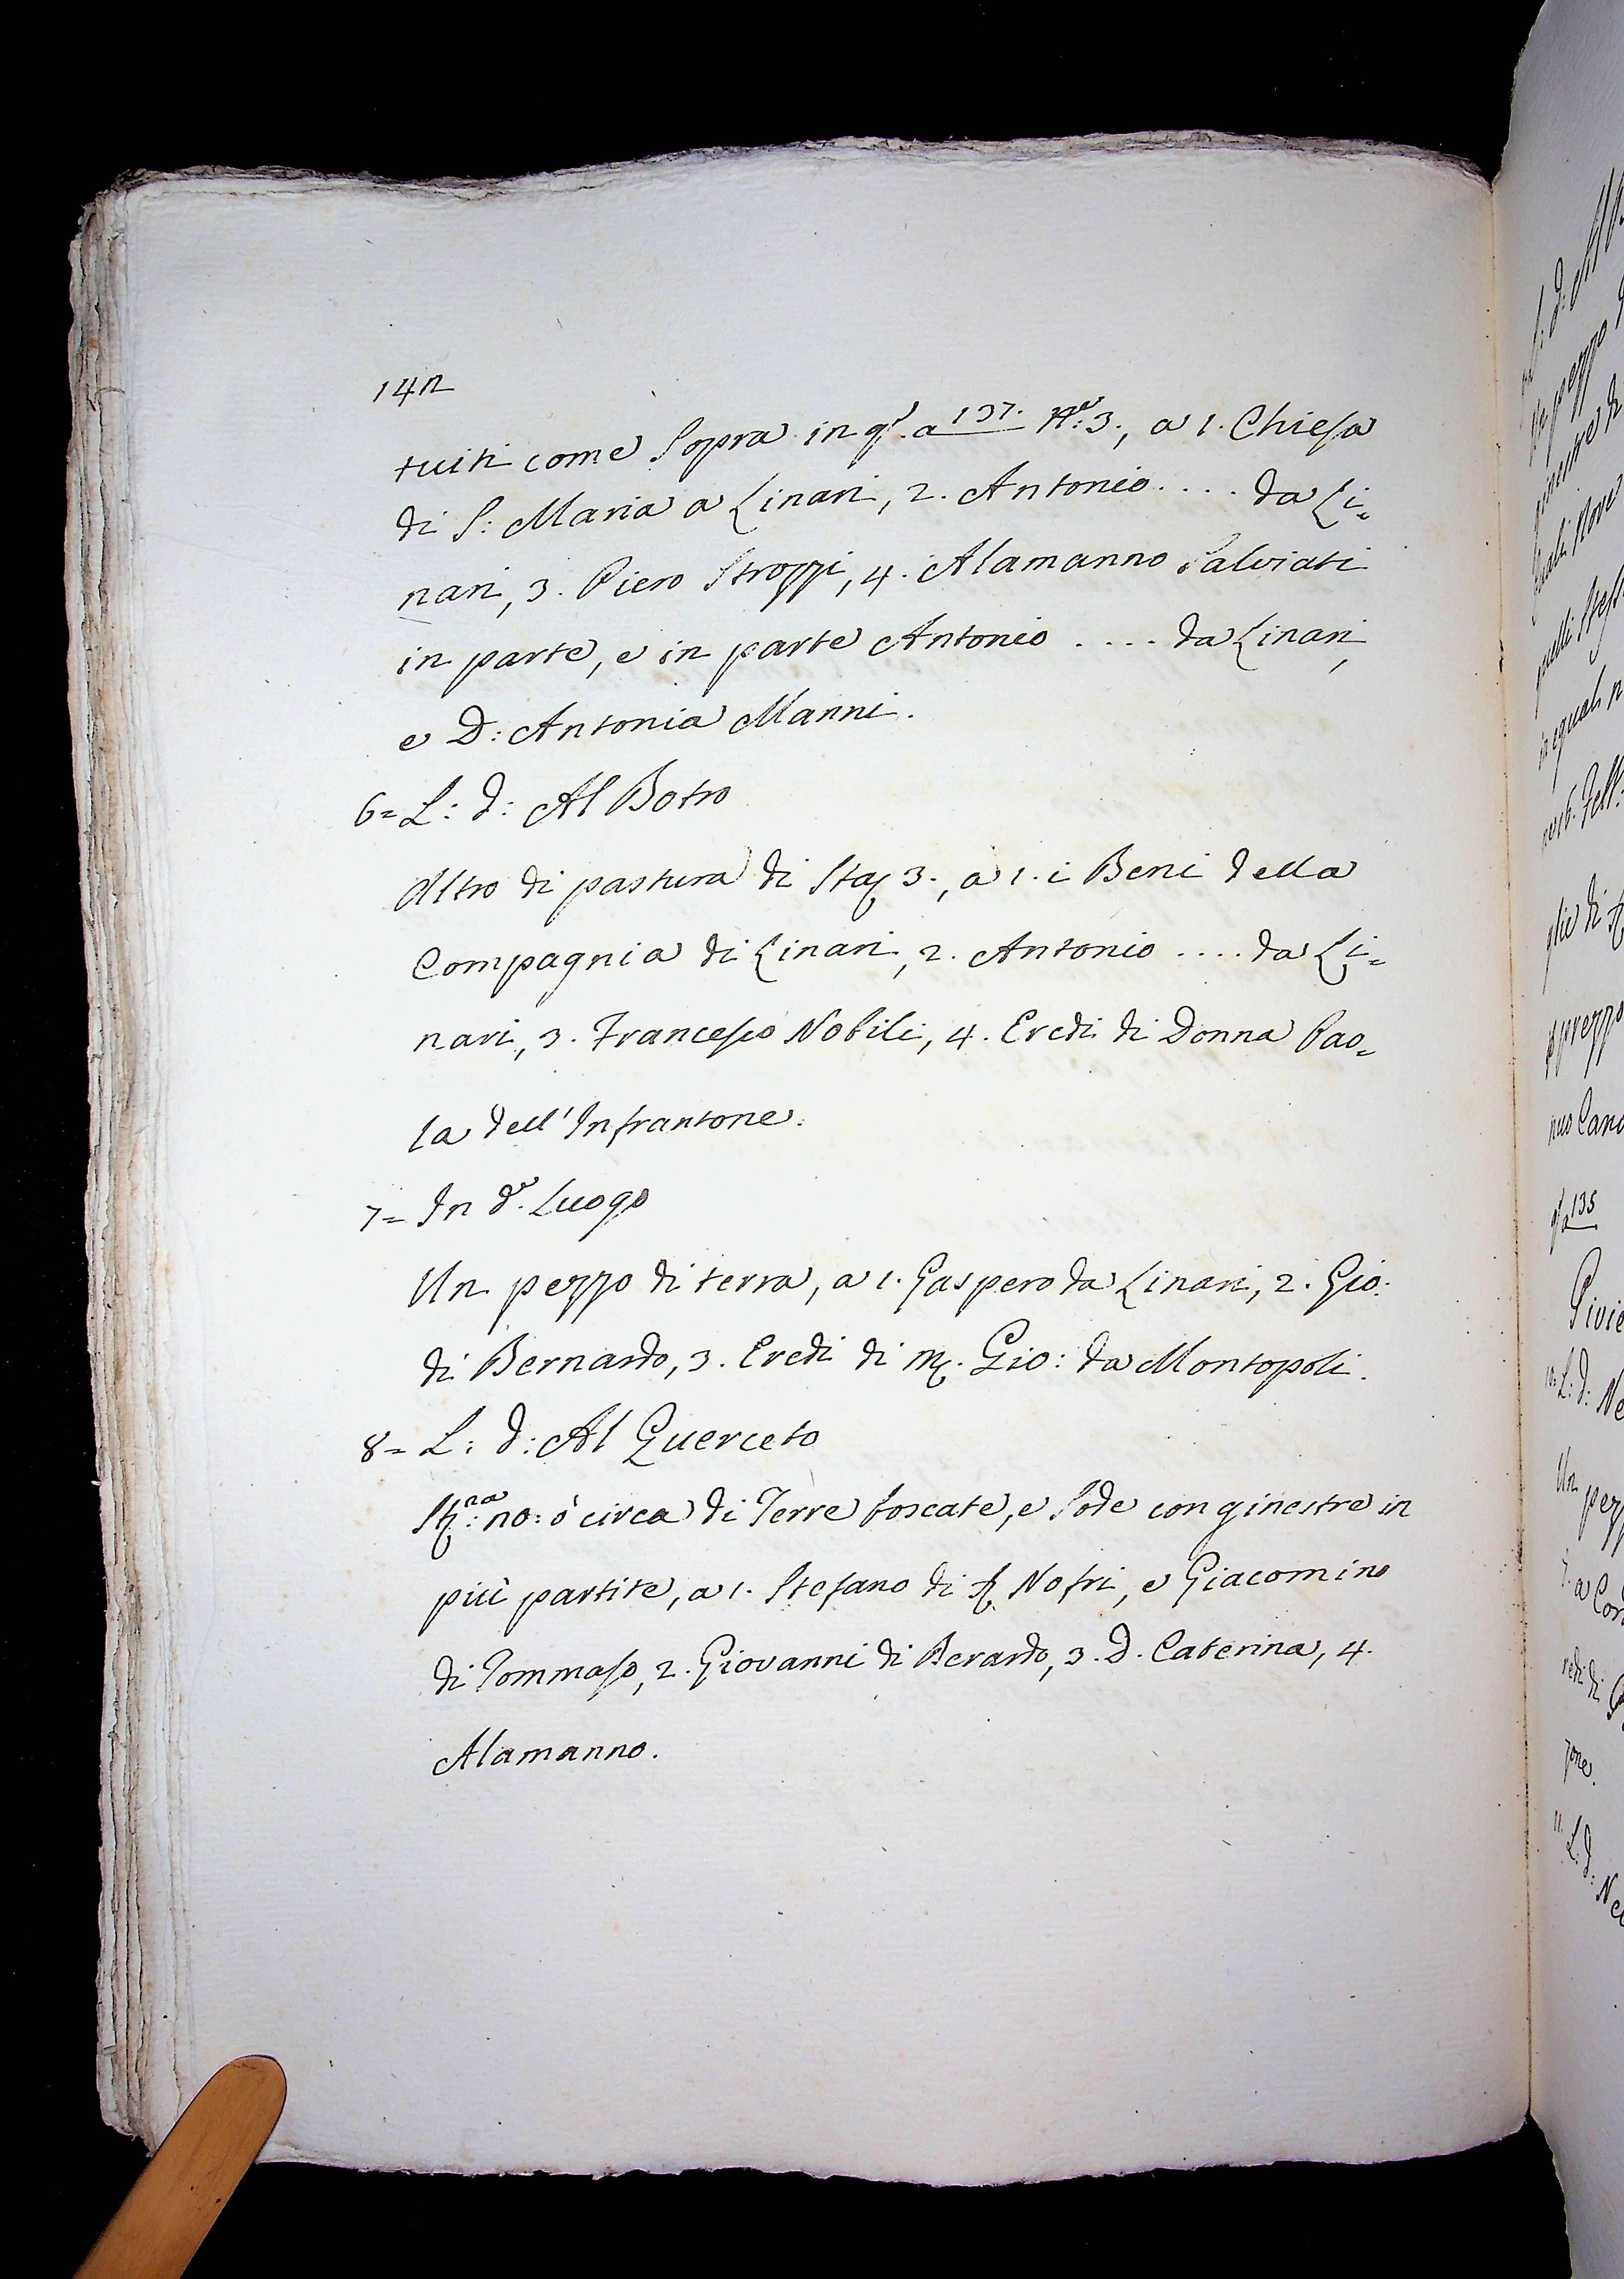 142
tuiti come Sopra in qo. a 137. No: 3., a 1. Chiesa
di S: Maria a Linari, 2. Antonio .... da Li=
nari, 3. Piero Strozzi, 4. Alamanno Salviati
in parte, e in parte Antonio .... da Linari,
e D: Antonia Manni.
6= L: d: Al Botro
Altro di pastura di Sta 3., a 1. i Beni della
Compagnia di Linari, 2. Antonio .... da Li=
nari, 3. Francesco Nobili, 4. Eredi di Donna Pao=
la dell'Infrantone.
7= In do. Luogo
Un pezzo di terra, a 1. Gaspero da Linari, 2. Gio:
di Bernardo, 3. Eredi di M. Gio: da Montopoli.
8= L: d: Al Querceto
na: no: ò circa di Terre boscate, e Sode con ginestre in
più partite, a 1. Stefano di Nofri, e Giacomino
di Tommaso, 2. Giovanni di Berardo, 3. D. Caterina, 4.
Alamanno.
135